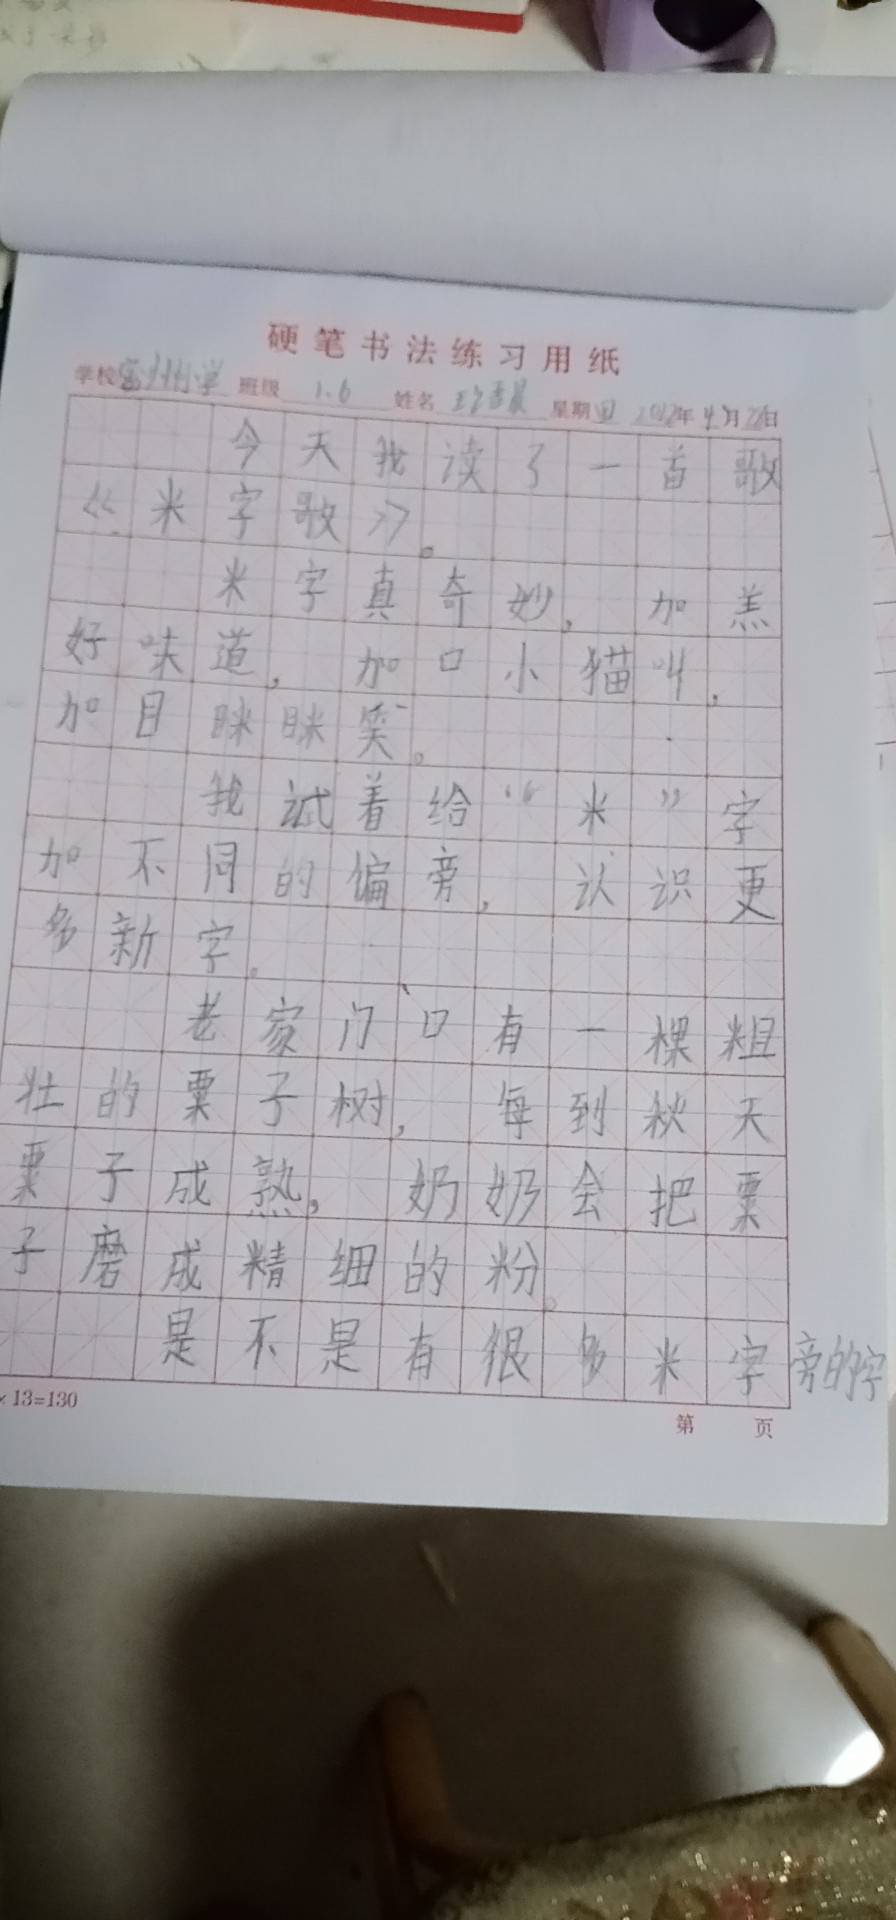 硬笔书法练习用纸
学校 班级 1.6 姓名 星期四 年4月 日
今天我读了一首歌
《米字歌》。
米字真奇妙,加羔
好味道,加口小猫叫,
加目眯眯笑。
我试着给“米”字
加不同的偏旁,认识更
多新字。
老家门口有一棵粗
壮的粟子树,每到秋天
粟子成熟,奶奶会把粟
子磨成精细的粉。
是不是有很多米字旁的字
×13=130
第 页